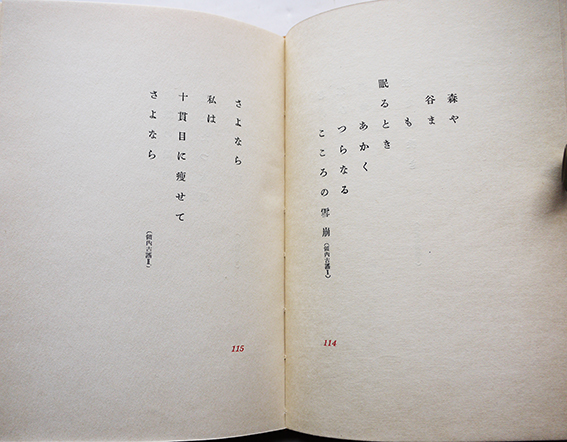 森や
谷ま
も
眠るとき
あかく
つらなる
こころの雪崩
114
さよなら
私は
十貫目に痩せて
さよなら
115